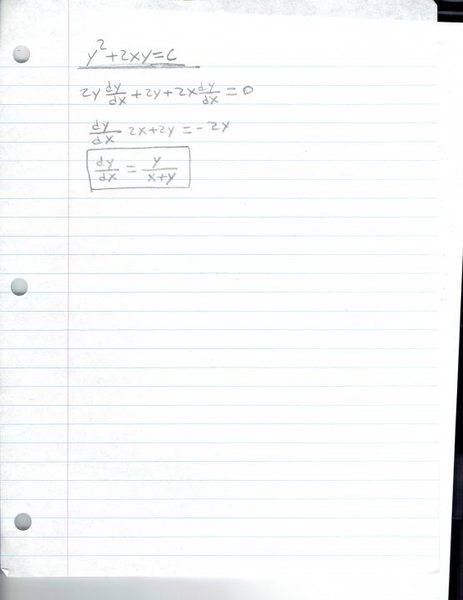 y²+2xy=C
2y dy/dx + 2y + 2x dy/dx = 0
dy/dx 2x+2y = -2y
dy/dx = y/x+y